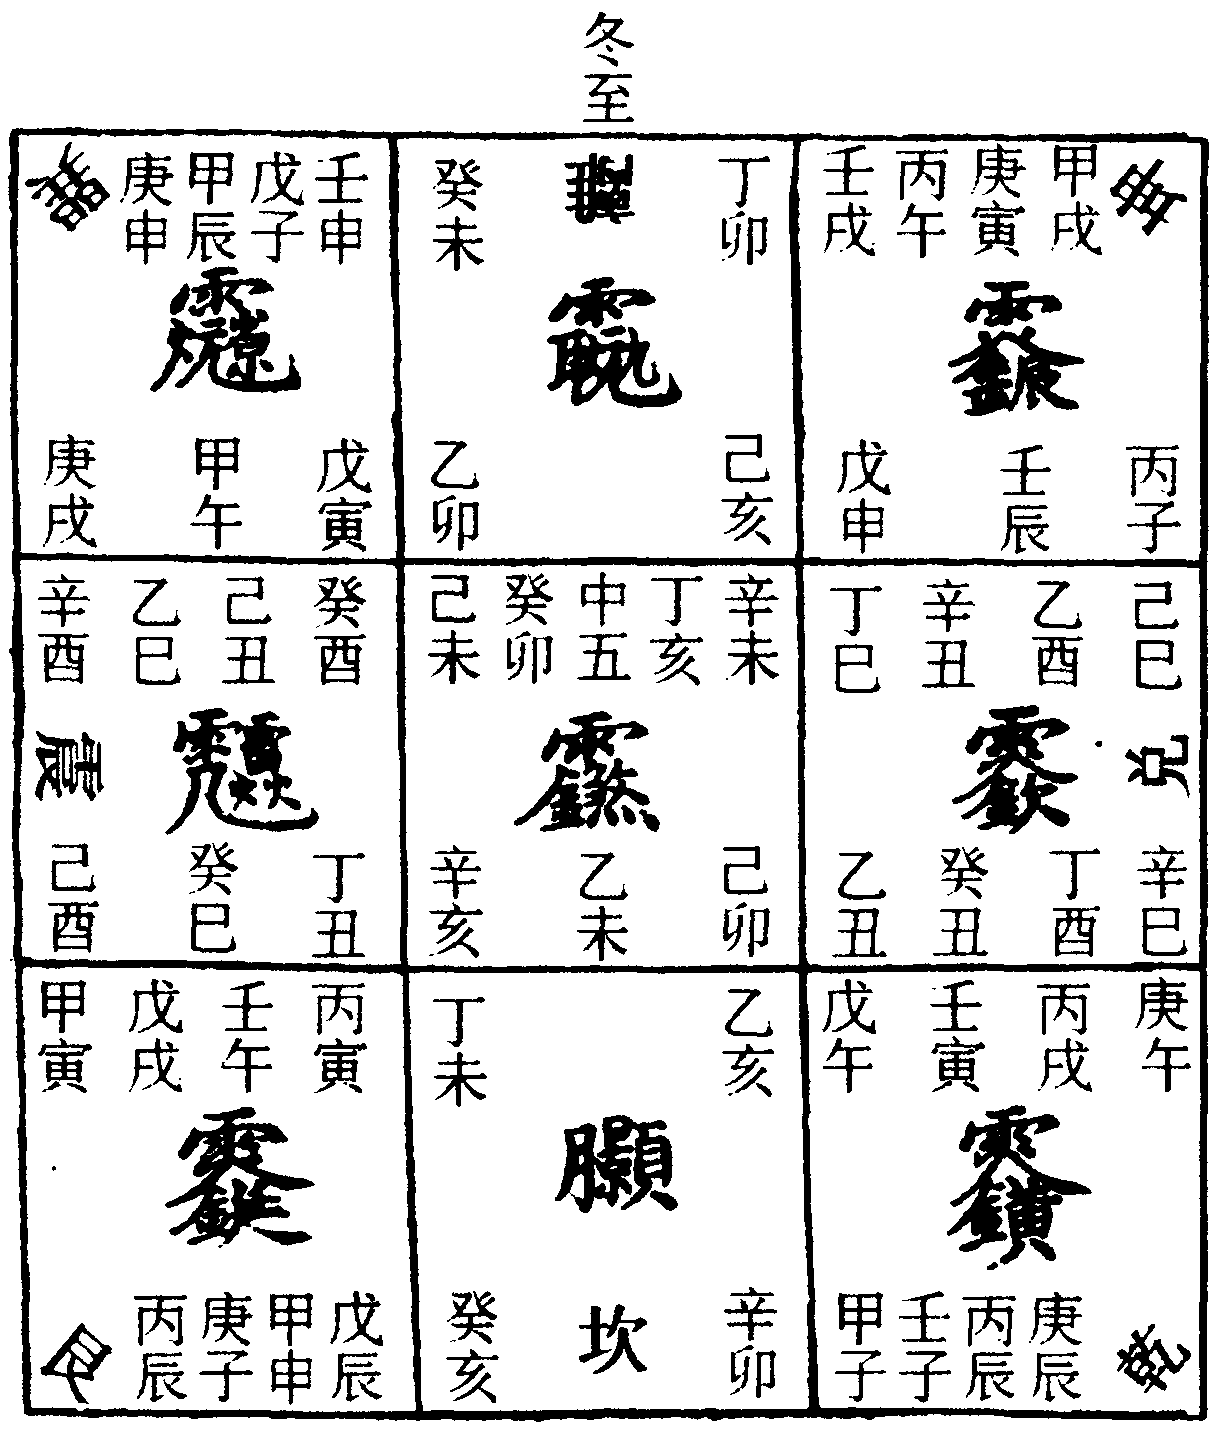 冬至
庚申 甲辰 戊子 壬申
庚戌 甲午 戊寅
癸未 丁卯
乙卯 己亥
壬戌 丙午 庚寅 甲戌
戊申 壬辰 丙子
辛酉 乙巳 己丑 癸酉
震
己酉 癸巳 丁丑
己未 癸卯 中五 丁亥 辛未
辛亥 乙未 己卯
丁巳 辛丑 乙酉 己巳
兌
乙丑 癸丑 丁酉 辛巳
甲寅 戊戌 壬午 丙寅
艮
丙辰 庚子 甲申 戊辰
丁未 乙亥
癸亥 坎 辛卯
戊午 壬寅 丙戌 庚午
甲子 壬子 丙辰 庚辰
乾